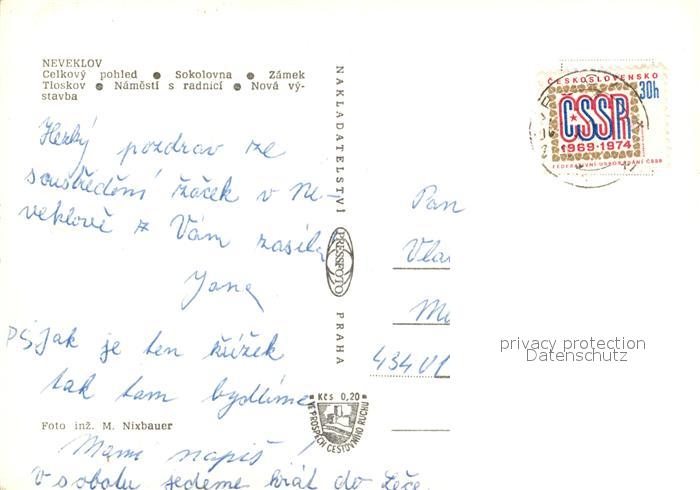 NEVEKLOV
Celkový pohled ● Sokolovna ● Zámek
Tloskov ● Náměstí s radnicí ● Nová vý-
stavba
Hezký pozdrav ze
soustředění žáček v Ne-
veklově z Vám zasílá
Jana
PS Jak je ten křížek
tak tam bydlíme
Foto inž. M. Nixbauer
Mami napiš!
V sobotu jedeme hrát do
NAKLADATELSTVÍ PRESSFOTO PRAHA
Kčs 0,20
VE PROSPĚCH CESTOVNÍHO RUCHU
ČESKOSLOVENSKO
30h
ČSSR
1969-1974
FEDERATIVNÍ USPOŘÁDÁNÍ ČSSR
Pan
434 01
privacy protection
Datenschutz